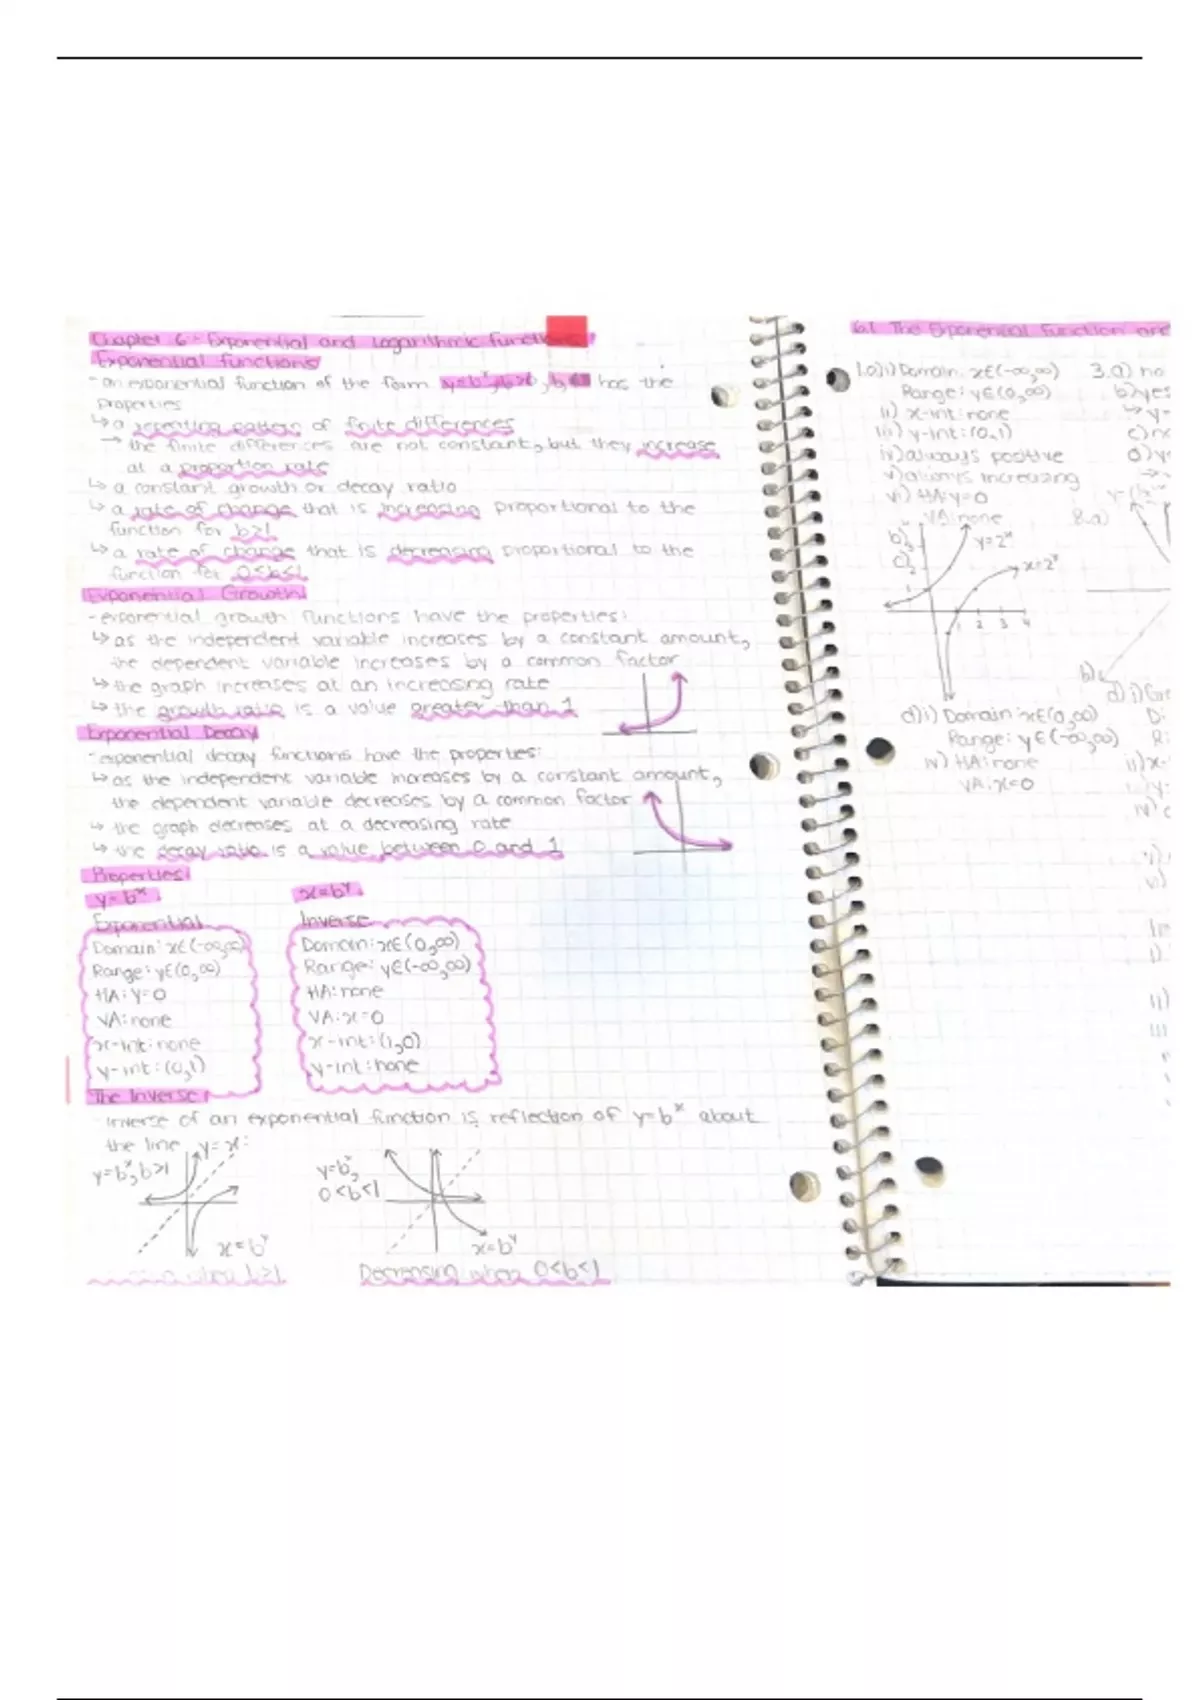 Chapter 6: Exponential and Logarithmic Functions
Exponential Functions
- an exponential function of the form y=bˣ, b>0, b≠1 has the
properties
↳ a repeating pattern of finite differences
→ the finite differences are not constant, but they increase
at a proportion rate
↳ a constant growth or decay ratio
↳ a rate of change that is increasing proportional to the
function for b>1
↳ a rate of change that is decreasing proportional to the
function for 0<b<1
Exponential Growth
- exponential growth functions have the properties:
↳ as the independent variable increases by a constant amount,
the dependent variable increases by a common factor
↳ the graph increases at an increasing rate
↳ the growth ratio is a value greater than 1
Exponential Decay
- exponential decay functions have the properties:
↳ as the independent variable increases by a constant amount,
the dependent variable decreases by a common factor
↳ the graph decreases at a decreasing rate
↳ the decay ratio is a value between 0 and 1
Properties
y=bˣ
Exponential
Domain: x∈(-∞,∞)
Range: y∈(0,∞)
HA: y=0
VA: none
x-int: none
y-int: (0,1)
x=bʸ
Inverse
Domain: x∈(0,∞)
Range: y∈(-∞,∞)
HA: none
VA: x=0
x-int: (1,0)
y-int: none
The Inverse
- inverse of an exponential function is reflection of y=bˣ about
the line y=x:
y=bˣ, b>1
x=bʸ
y=bˣ,
0<b<1
x=bʸ
when b>1
Decreasing when 0<b<1
6.1 The Exponential Function and
1.a)i) Domain: x∈(-∞,∞)
Range: y∈(0,∞)
ii) x-int: none
iii) y-int: (0,1)
iv) always positive
v) always increasing
vi) HA: y=0
VA: none
b)
c)
y=2ˣ
x=2ʸ
1 2 3 4
d)i) Domain: x∈(0,∞)
Range: y∈(-∞,∞)
iv) HA: none
VA: x=0
3.a) no
b) yes
↳ y=
c) no
8.a)
b)
d) i)
ii) x-